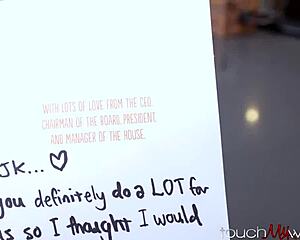 WITH LOTS OF LOVE FROM THE CEO,
CHAIRMAN OF THE BOARD, PRESIDENT,
AND MANAGER OF THE HOUSE.
JK... ♡
you definitely do a LOT for
us so I thought I would
touchMyW